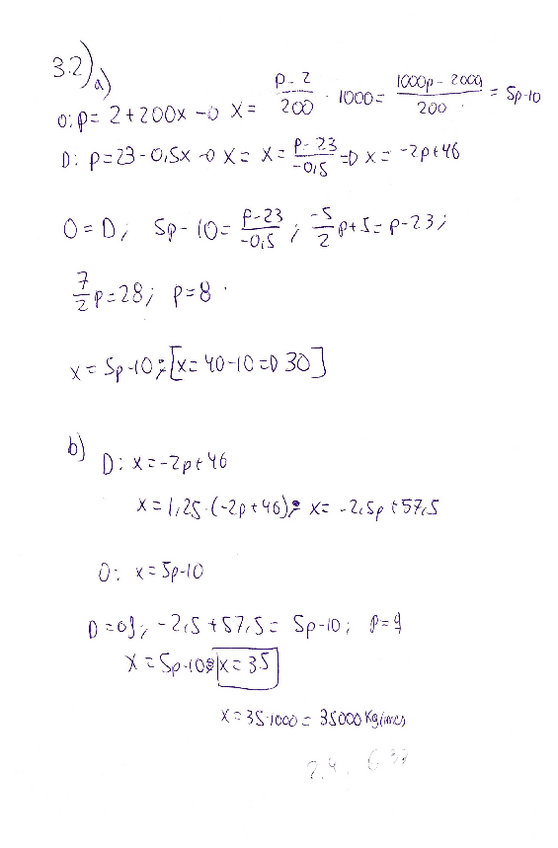 3.2) a)
O: p = 2 + 200x → x = (p - 2)/200 · 1000 = (1000p - 2000)/200 = 5p - 10
D: p = 23 - 0,5x → x = x = (p - 23)/-0,5 ⇒ x = -2p + 46
O = D; 5p - 10 = (p - 23)/-0,5; -5/2 p + 5 = p - 23;
7/2 p = 28; p = 8
x = 5p - 10; [x = 40 - 10 ⇒ 30]
b) D: x = -2p + 46
x = 1,25 · (-2p + 46); x = -2,5p + 57,5
O: x = 5p - 10
D = O; -2,5 + 57,5 = 5p - 10; p = 9
x = 5p - 10; x = 35
x = 35·1000 = 35000 Kg/mes